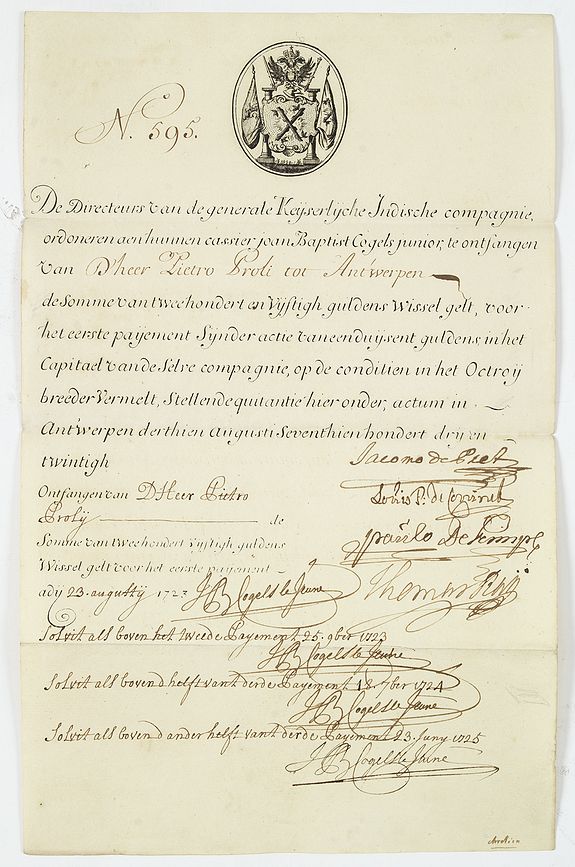 N. 595.
De Directeurs van de generale Keyserlyche Indische compagnie,
ordoneren aen hunnen cassier joan Baptist Cogels junior, te ontfangen
van D'heer Pietro Proli tot Antwerpen
de Somme van tweehondert en Vyftigh guldens Wissel gelt, voor
het eerste payement Synder actie van eenduysent guldens in het
Capitael van de Selve compagnie, op de conditien in het Octroij
breeder Vermelt, Stellende quitantie hier onder, actum in
Antwerpen derthien Augusti Seventhien hondert drij en
twintigh
Jacomo de Pret
Ontfangen van D'Heer Pietro
Louis F. de
Prolij de
Paulo De
Somme van tweehondert Vyftigh guldens
Wissel gelt voor het eerste payement
Thomas
adij 23. augustij 1723 JB Cogels le Jeune
Solvit als boven het tweede Payement 25. 9ber 1723
JB Cogels le Jeune
Solvit als boven d helft van t derde Payement 18. 7ber 1724
JB Cogels le Jeune
Solvit als boven d ander helft van t derde Payement 23. Juny 1725
JB Cogels le Jeune